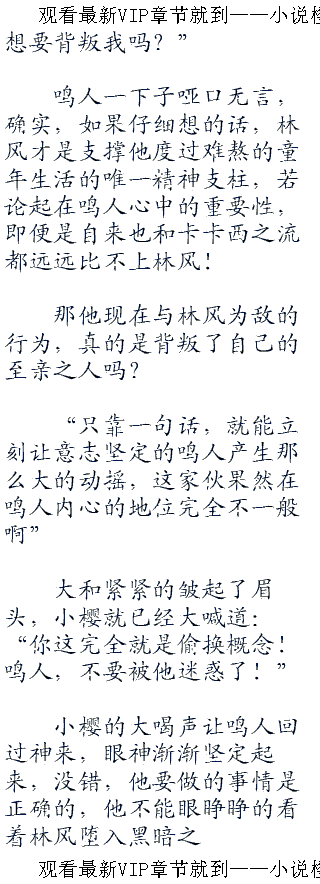 观看最新VIP章节就到——小说
想要背叛我吗？”
鸣人一下子哑口无言，
确实，如果仔细想的话，林
风才是支撑他度过难熬的童
年生活的唯一精神支柱，若
论起在鸣人心中的重要性，
即便是自来也和卡卡西之流
都远远比不上林风！
那他现在与林风为敌的
行为，真的是背叛了自己的
至亲之人吗？
“只靠一句话，就能立
刻让意志坚定的鸣人产生那
么大的动摇，这家伙果然在
鸣人内心的地位完全不一般
啊”
大和紧紧的皱起了眉
头，小樱就已经大喊道：
“你这完全就是偷换概念！
鸣人，不要被他迷惑了！”
小樱的大喝声让鸣人回
过神来，眼神渐渐坚定起
来，没错，他要做的事情是
正确的，他不能眼睁睁的看
着林风堕入黑暗之
观看最新VIP章节就到——小说